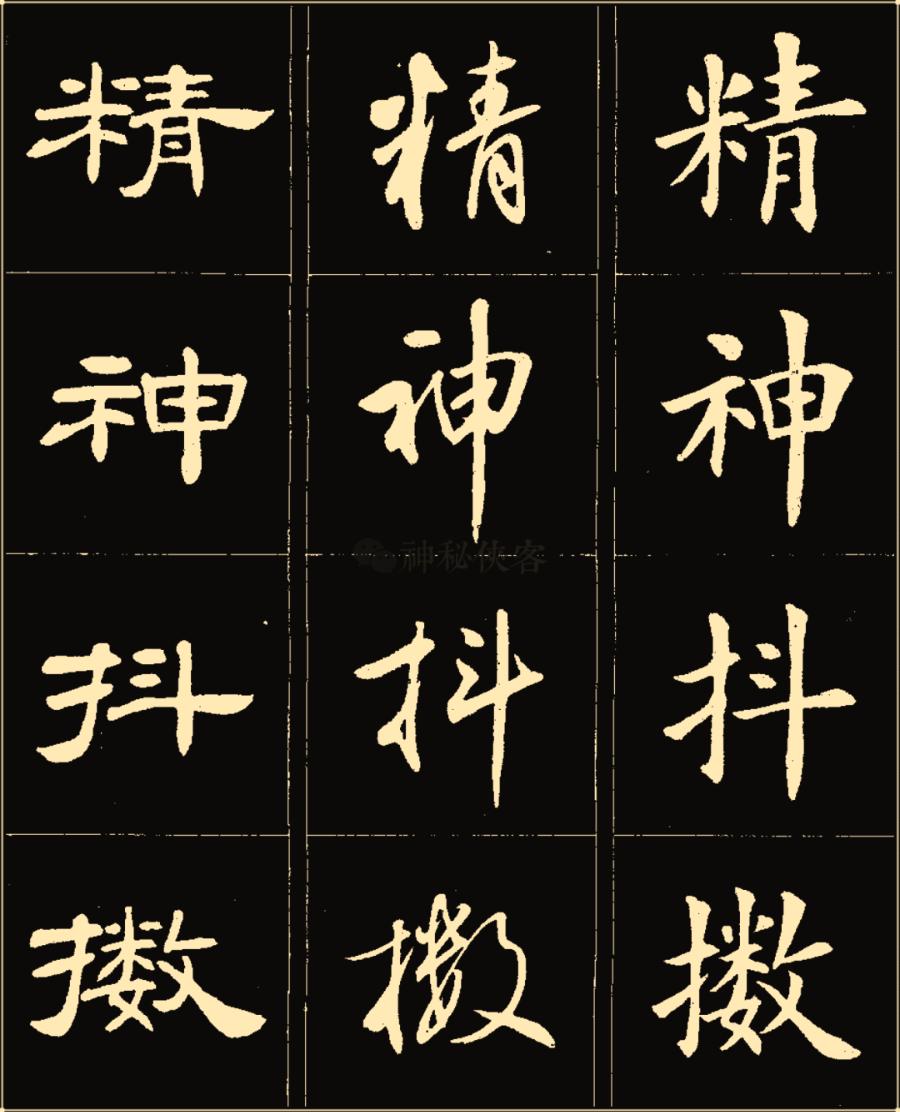 精神抖擞
精神抖擞
精神抖擞
神秘侠客